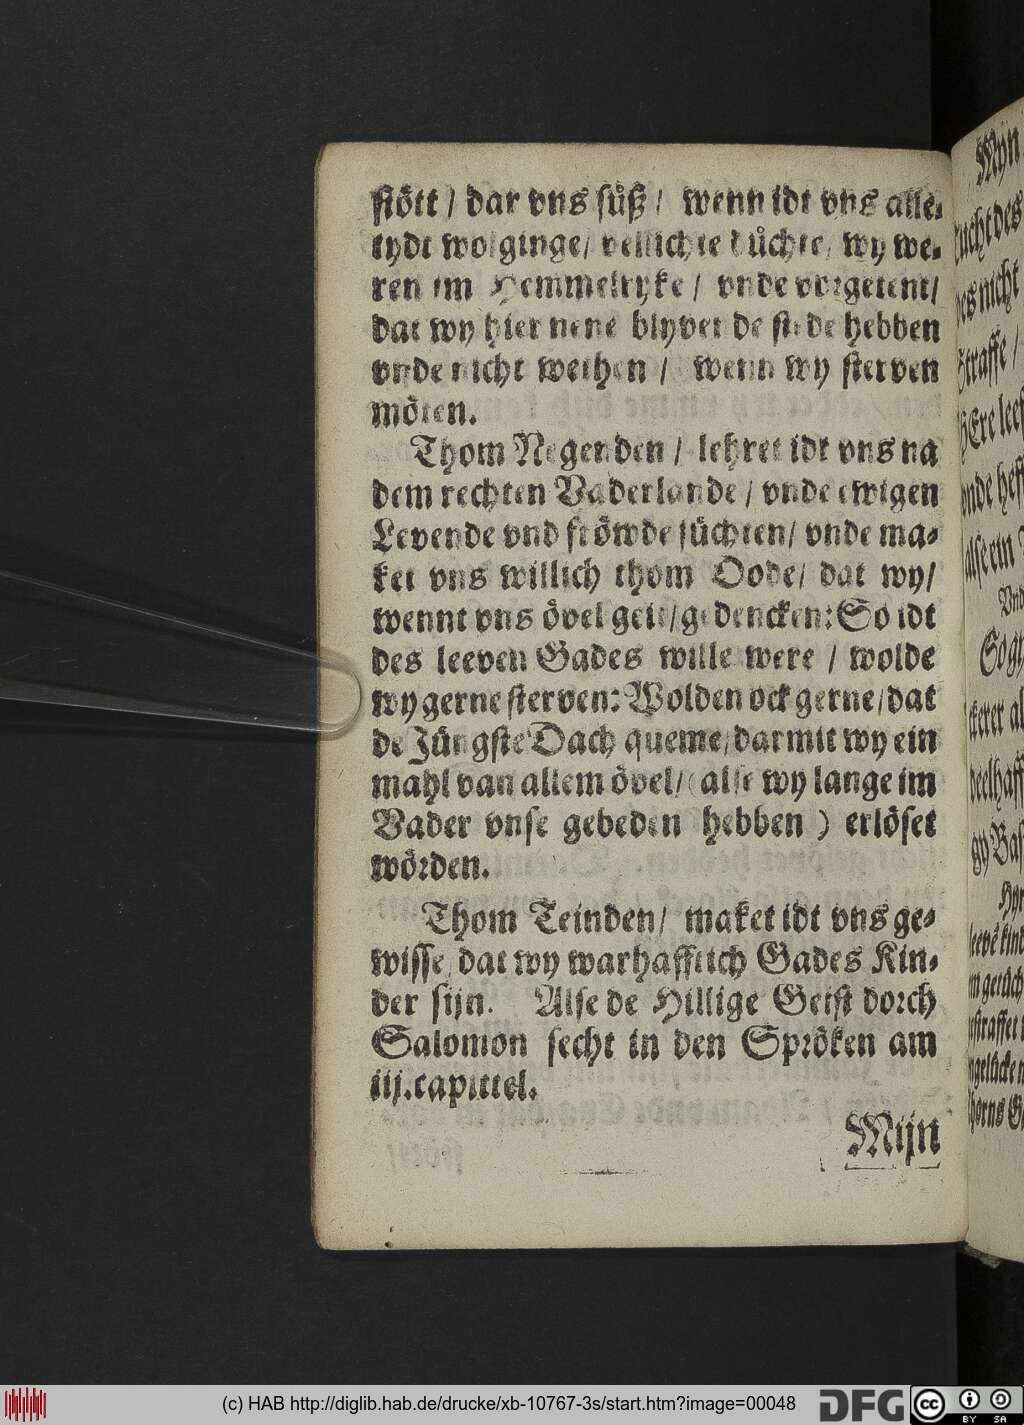 stött / dar vns süß / wenn idt vns alle-
tydt wolginge / vellichte düchte / wy we-
ren im Hemmelryke / vnde vorgetent /
dat wy hier nene blyvende stede hebben
vnde nicht wethen / wenn wy sterven
möten.
Thom Negenden / lehret idt vns na
dem rechten Vaderlande / vnde ewigen
Levende vnd fröwde süchten / vnde ma-
ket vns willich thom Dode / dat wy /
wennt vns övel geit / gedencken: So idt
des leeven Gades wille were / wolde
wy gerne sterven: Wolden ock gerne / dat
de Jüngste Dach queme / darmit wy ein
mahl van allem övel / (alse wy lange im
Vader vnse gebeden hebben) erlöset
wörden.
Thom Teinden / maket idt vns ge-
wisse / dat wy warhafftich Gades Kin-
der sijn. Alse de Hillige Geist dorch
Salomon secht in den Spröken am
iij. capittel.
Mijn
Mijn
tucht des
des nicht
Straffe /
HEre leef
vnde heff
alse ein
Vnd
So gy
deelhaff
gy Bas
leevē kind
gestraffet
ngelücke
(c) HAB http://diglib.hab.de/drucke/xb-10767-3s/start.htm?image=00048
DFG
cc
BY SA